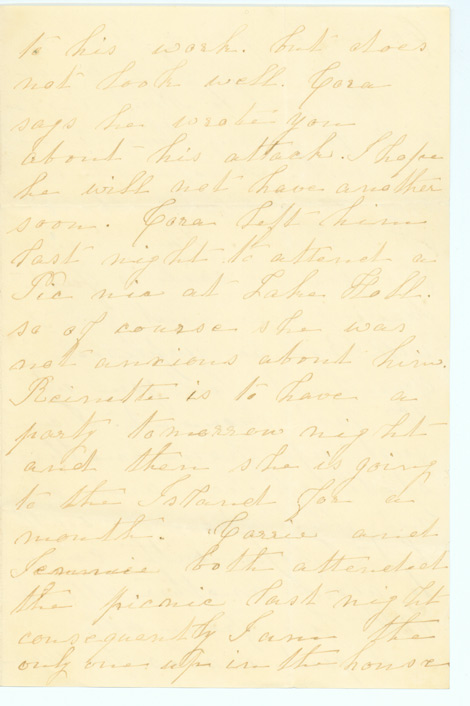 to his work. but does
not look well. Cora
says he wrote you
about his attack. I hope
he will not have another
soon. Cora left him
last night to attend a
Pic nic at Lake Holl.
so of course she was
not anxious about him.
Reinette is to have a
party tomorrow night
and then she is going
to the Island for a
month. Carrie and
Jennnie both attended
the picnic last night
consequently I am the
only one up in the house